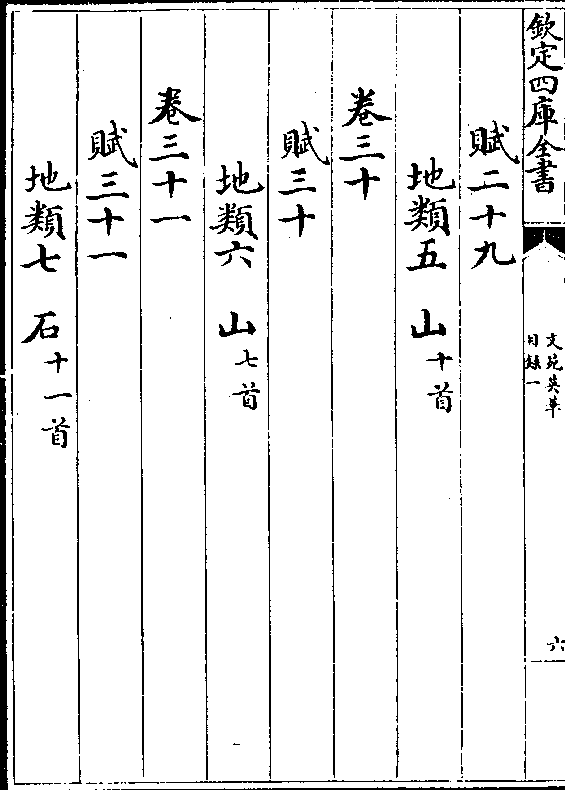 欽定四庫全書
文苑英華
目錄一
六
賦二十九
地類五　山十首
卷三十
賦三十
地類六　山七首
卷三十一
賦三十一
地類七　石十一首